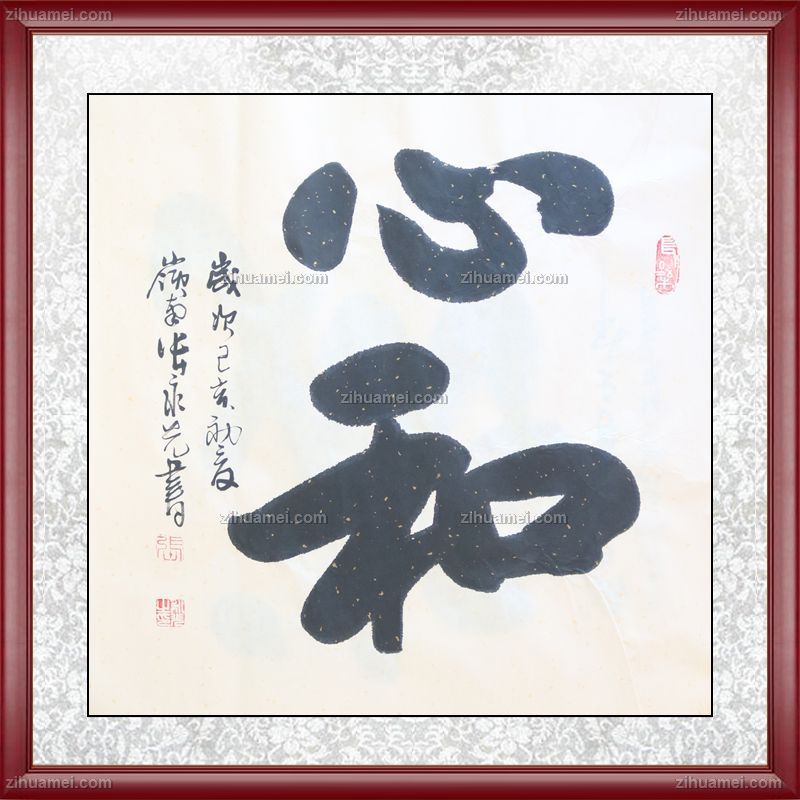 zihuamei.com
zihuamei.com
心和
歲次己亥初夏
嶺南張永光書
張
zihuamei.com
zihuamei.com
zihuamei.com
zihuamei.com
zihuamei.com
zihuamei.com
zihuamei.com